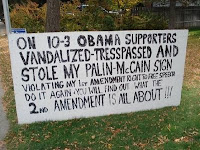 ON 10-3 OBAMA SUPPORTERS
VANDALIZED-TRESSPASSED AND
STOLE MY PALIN-McCAIN SIGN
VIOLATING MY 1ST AMENDMENT RIGHT TO FREE SPEECH
DO IT AGAIN & YOU WILL FIND OUT WHAT THE
2ND AMENDMENT IS ALL ABOUT!!!